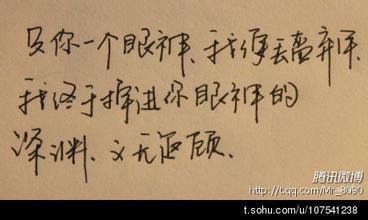 只你一个眼神、我便丢盔弃甲、
我终于掉进你眼神的
深渊、义无返顾、
腾讯微博
http://t.qq.com/Mr_8090
t.sohu.com/u/107541238